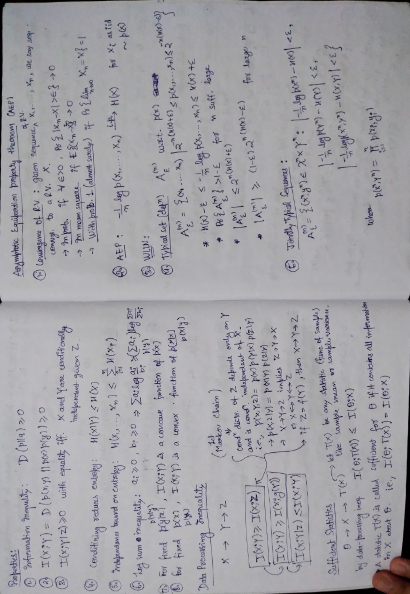 Properties:
① Information Inequality: D(p||q) ≥ 0
② I(X;Y) = D(p(x,y) || p(x)p(y)) ≥ 0
③ I(X;Y|Z) ≥ 0 with equality iff X and Y are conditionally
independent given Z
④ Conditioning reduces entropy: H(X|Y) ≤ H(X)
⑤ Independence bound on entropy: H(X1, ... Xn) ≤ Σ H(Xi)
⑥ Log sum inequality: ai ≥ 0, bi ≥ 0
⑦ For fixed p(y|x) I(X;Y) is a concave function of p(x)
⑧ for fixed p(x) I(X;Y) is a convex function of p(y|x)
Data Processing Inequality
X → Y → Z
(Markov Chain)
Cond. distr. of Z depends only on Y
and is cond. independent of X.
i.e., p(x,y,z) = p(x) p(y|x) p(z|y)
→ p(x,z|y) = p(x|y) p(z|y)
→ X→Y→Z implies Z→Y→X
→ if Z = f(Y), then X→Y→Z
I(X;Y) ≥ I(X;Z)
I(X;Y) ≥ I(X;g(Y))
I(X;Y|Z) ≤ I(X;Y)
Sufficient Statistics
→ let T(X) be any statistic (func of sample)
like sample mean or sample variance.
θ → X → T(X)
by data processing ineq. I(θ;T(X)) ≤ I(θ;X)
A statistic T(X) is called sufficient for θ if it contains all information
in X about θ. i.e., I(θ;T(X)) = I(θ;X)
Asymptotic Equipartition property theorem (AEP)
① Convergence of R.V.: given sequence, X1, ..., Xn, we say seq.
converge to a R.V. X.
→ In prob. if ∀ε>0 Pr{|Xn-X|>ε} → 0
→ In mean square if E(Xn-X)² → 0
→ With prob. 1 (almost surely) if Pr{lim Xn = X} = 1
② AEP: -1/n log p(X1, ... Xn) → H(X) for Xi iid ~ p(x)
③ WLLN:
④ Typical Set (defn) Aε(n) w.r.t. p(x)
Aε(n) = {(x1, ... xn) | 2^-n(H(X)+ε) ≤ p(x1, ... xn) ≤ 2^-n(H(X)-ε)}
* H(X)-ε ≤ -1/n log p(x1, ... xn) ≤ H(X)+ε
* Pr{Aε(n)} > 1-ε for n suff. large
* |Aε(n)| ≤ 2^n(H(X)+ε)
* |Aε(n)| ≥ (1-ε) 2^n(H(X)-ε) for larger n
⑤ Jointly Typical Sequences:
Aε(n) = {(x^n,y^n) ∈ X^n × Y^n: |-1/n log p(x^n) - H(X)| < ε,
|-1/n log p(y^n) - H(Y)| < ε,
|-1/n log p(x^n,y^n) - H(X,Y)| < ε}
where p(x^n,y^n) = Π p(xi,yi)